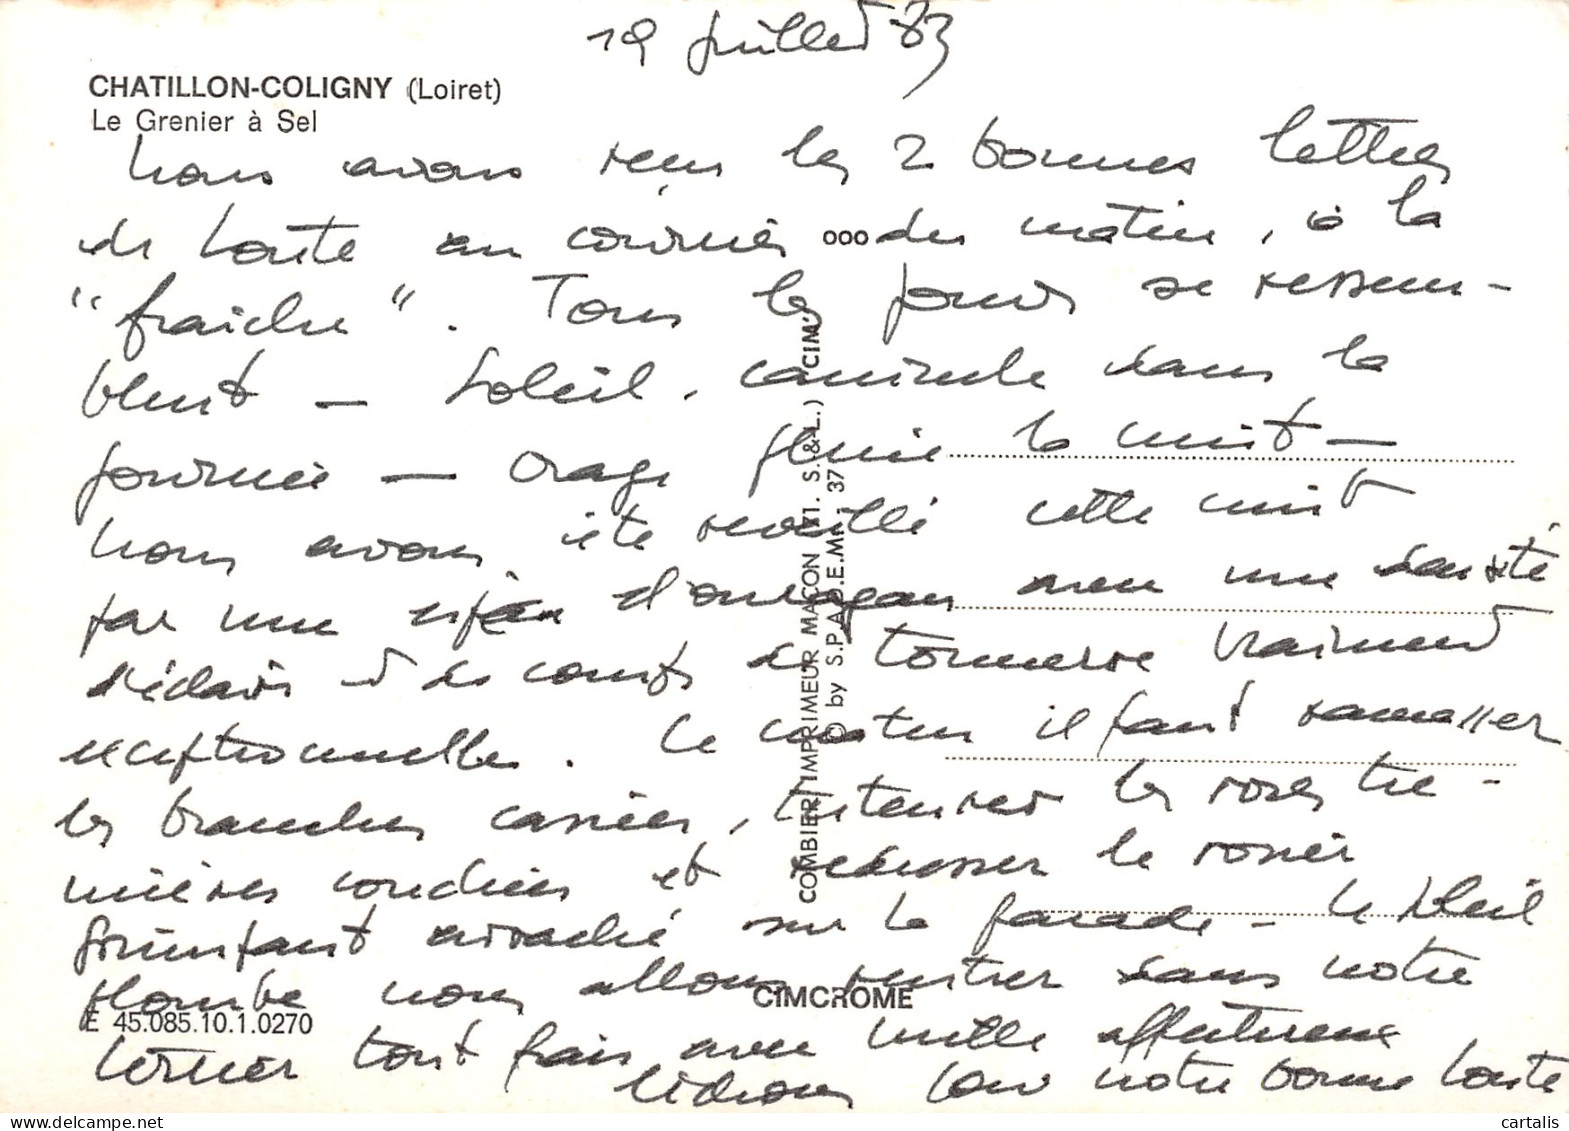 19 juillet 83
CHATILLON-COLIGNY (Loiret)
Le Grenier à Sel
Nous avons reçu les 2 bonnes lettres
de Tante au courrier du matin, à la
"fraîche". Tous les jours se ressem-
blent — Soleil, canicule dans la
journée — orage pluie la nuit —
Nous avons été réveillé cette nuit
par une d'ouragan avec une densité
d'éclairs et de coups de tonnerre vraiment
exceptionnelle. Ce matin il faut ramasser
les branches cassées, les roses tré-
mières couchées et redresser le rosier
grimpant arraché sur la façade — le soleil
plombe nous allons rentrer dans notre
tout frais avec mille affectueux
pour notre bonne Tante
COMBIER IMPRIMEUR MACON (71. S.&L.) "CIM"
© by S.P.A.D.E.M. 37
CIMCROME
E 45.085.10.1.0270
cartalis